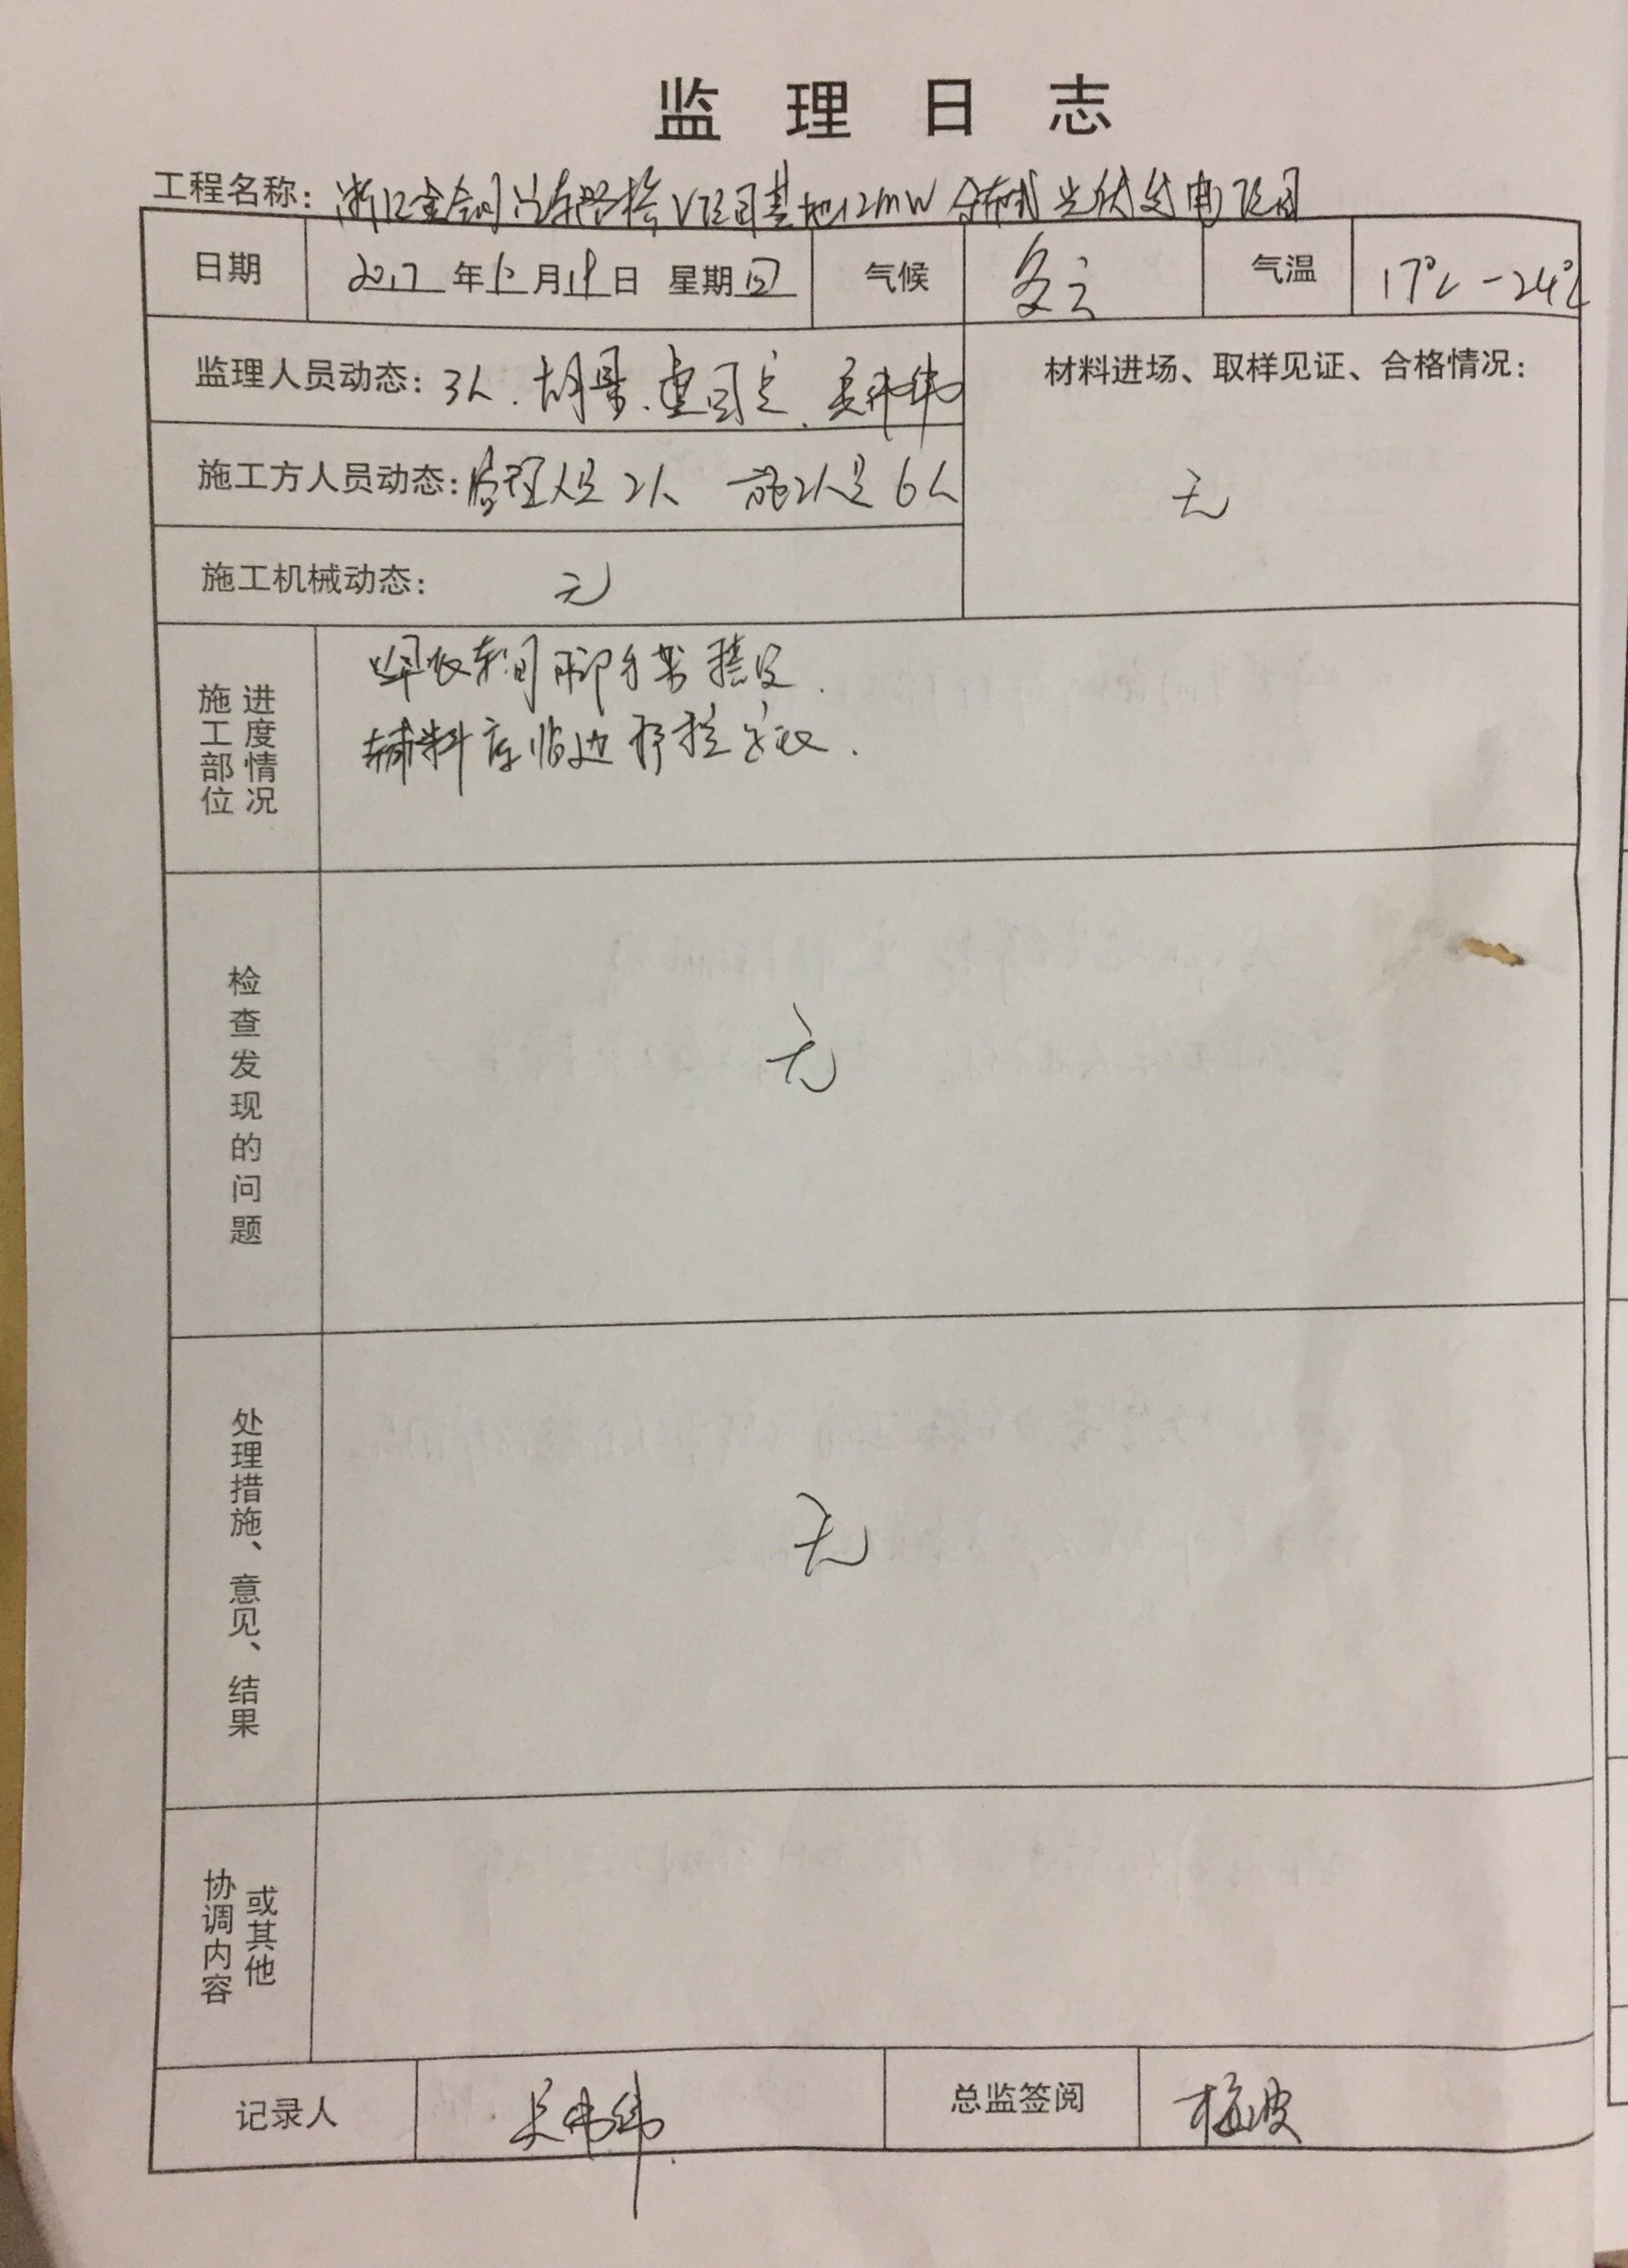 监理日志
工程名称: 浙江金刚汽车路桥V项目基地12MW分布式光伏发电项目
日期 2017年 月19日 星期四 气候 多云 气温 17℃-24℃
监理人员动态: 3人.胡景.
材料进场、取样见证、合格情况:
无
施工方人员动态: 管理人员2人 施工人员6人
施工机械动态: 无
施工部位进度情况
焊装车间脚手架搭设.
辅料库临边护栏安装.
检查发现的问题
无
处理措施、意见、结果
无
协调内容或其他
记录人 吴伟伟 总监签阅